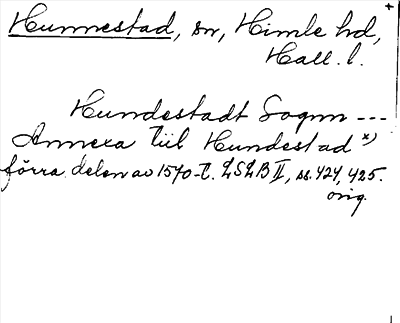 Hunnestad, sn, Himle hd,
Hall. l.
Hundestadt Sognn ---
Annexa till Hundestad x)
förra delen av 1570-t. LSLB II, ss. 424, 425.
orig.